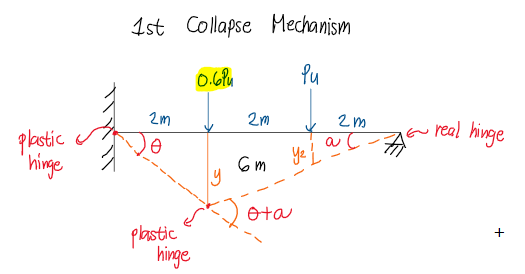 1st Collapse Mechanism
0.6Pu
Pu
2m
2m
2m
plastic
hinge
θ
y
6 m
y2
a
real hinge
θ+a
plastic
hinge
+